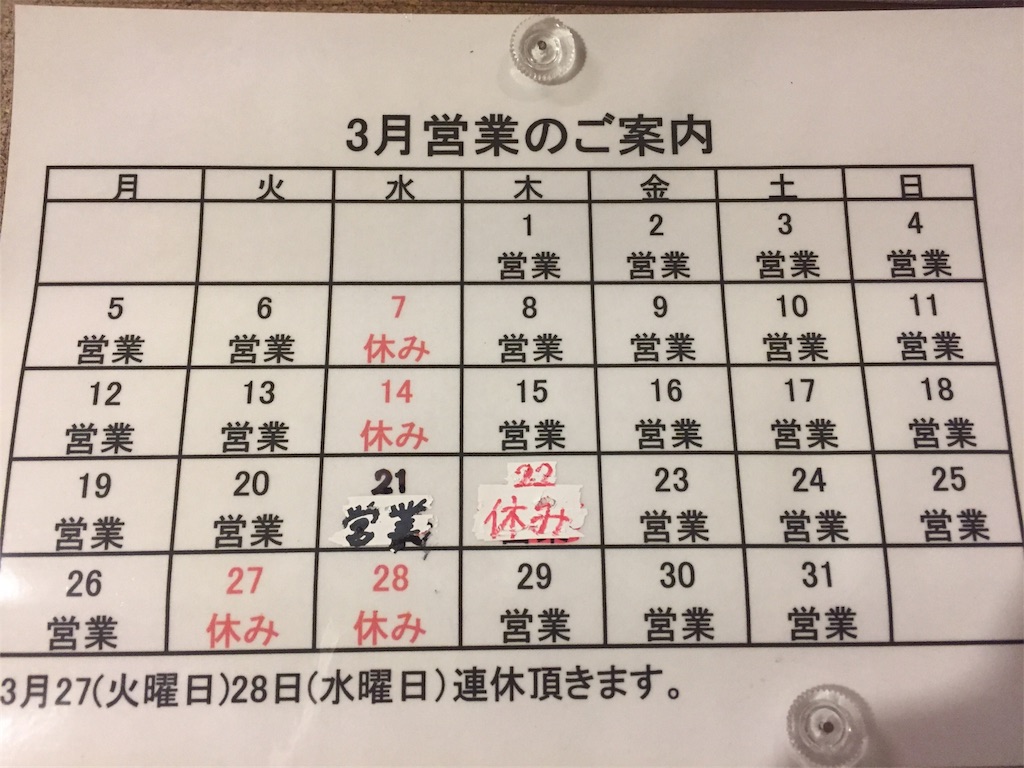 3月営業のご案内
月 火 水 木 金 土 日
1 2 3 4
営業 営業 営業 営業
5 6 7 8 9 10 11
営業 営業 休み 営業 営業 営業 営業
12 13 14 15 16 17 18
営業 営業 休み 営業 営業 営業 営業
19 20 21 22 23 24 25
営業 営業 営業 休み 営業 営業 営業
26 27 28 29 30 31
営業 休み 休み 営業 営業 営業
3月27(火曜日)28日(水曜日)連休頂きます。